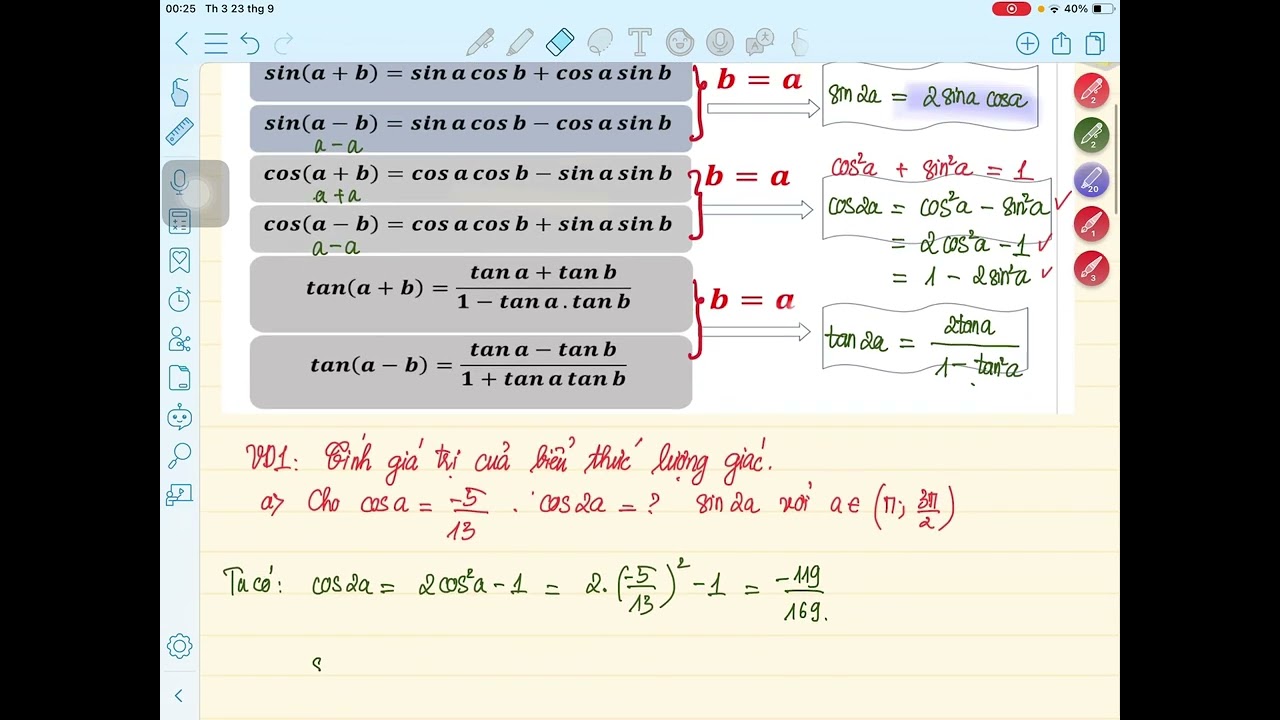 00:25 Th 3 23 thg 9 40%
sin(a + b) = sin a cos b + cos a sin b
b = a
sin 2a = 2 sin a cos a
sin(a − b) = sin a cos b − cos a sin b
a − a
cos(a + b) = cos a cos b − sin a sin b
a + a
b = a
cos²a + sin²a = 1
cos 2a = cos²a − sin²a ✓
cos(a − b) = cos a cos b + sin a sin b
a − a
= 2cos²a − 1 ✓
= 1 − 2sin²a ✓
tan(a + b) = (tan a + tan b)/(1 − tan a . tan b)
b = a
tan 2a = 2tan a/(1 − tan²a)
tan(a − b) = (tan a − tan b)/(1 + tan a tan b)
2
2
20
1
3
VD1: Tính giá trị của biểu thức lượng giác.
a> Cho cos a = -5/13 . cos 2a = ? sin 2a với a ∈ (π; 3π/2)
Ta có: cos 2a = 2cos²a − 1 = 2.(-5/13)² − 1 = -119/169.
s